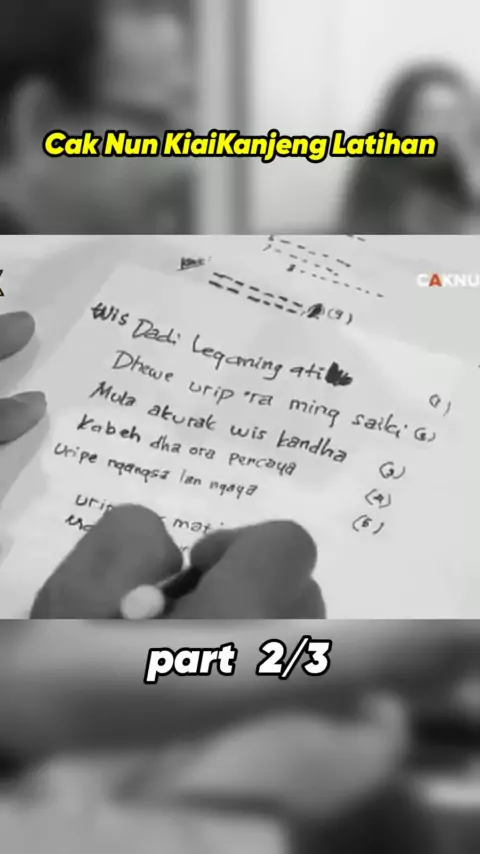 Cak Nun KiaiKanjeng Latihan
CAKNU
(9)
Wis Dadi Legoning ati (1)
Dhewe urip ra ming saiki (2)
Mula akurak wis kandha (3)
Kabeh dha ora percaya (4)
Uripe ngangsa lan ngaya (5)
urip mat
part 2/3